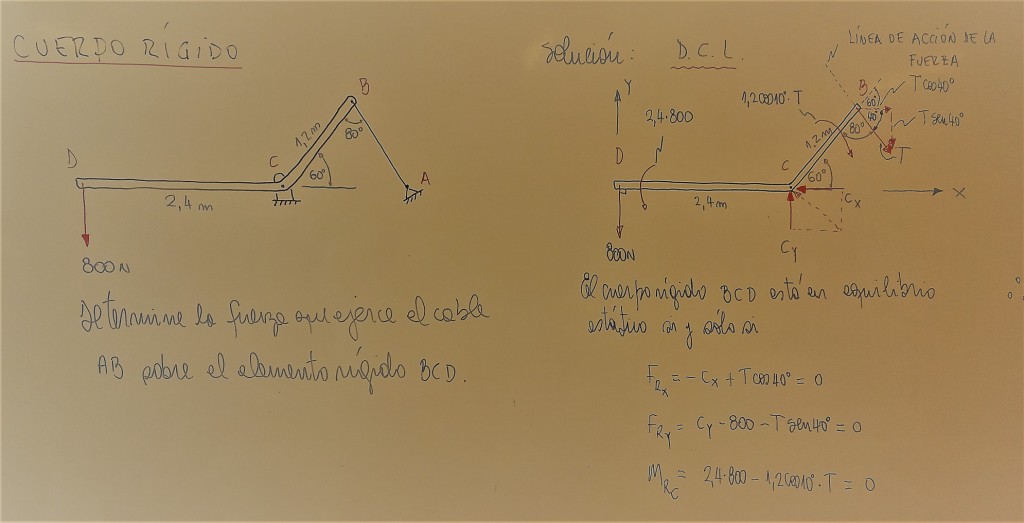 CUERPO RÍGIDO
D
C
B
A
1,2m
80°
60°
2,4m
800N
Determine la fuerza que ejerce el cable
AB sobre el elemento rígido BCD.
Solución: D.C.L.
LÍNEA DE ACCIÓN DE LA
FUERZA
Y
2,4·800
1,2cos10°·T
B
60°
40°
Tcos40°
Tsen40°
80°
T
D
1,2m
C
60°
2,4m
Cx
X
800N
Cy
El cuerpo rígido BCD está en equilibrio
estático si y sólo si
FRx = -Cx + Tcos40° = 0
FRy = Cy - 800 - Tsen40° = 0
MRC = 2,4·800 - 1,2cos10°·T = 0